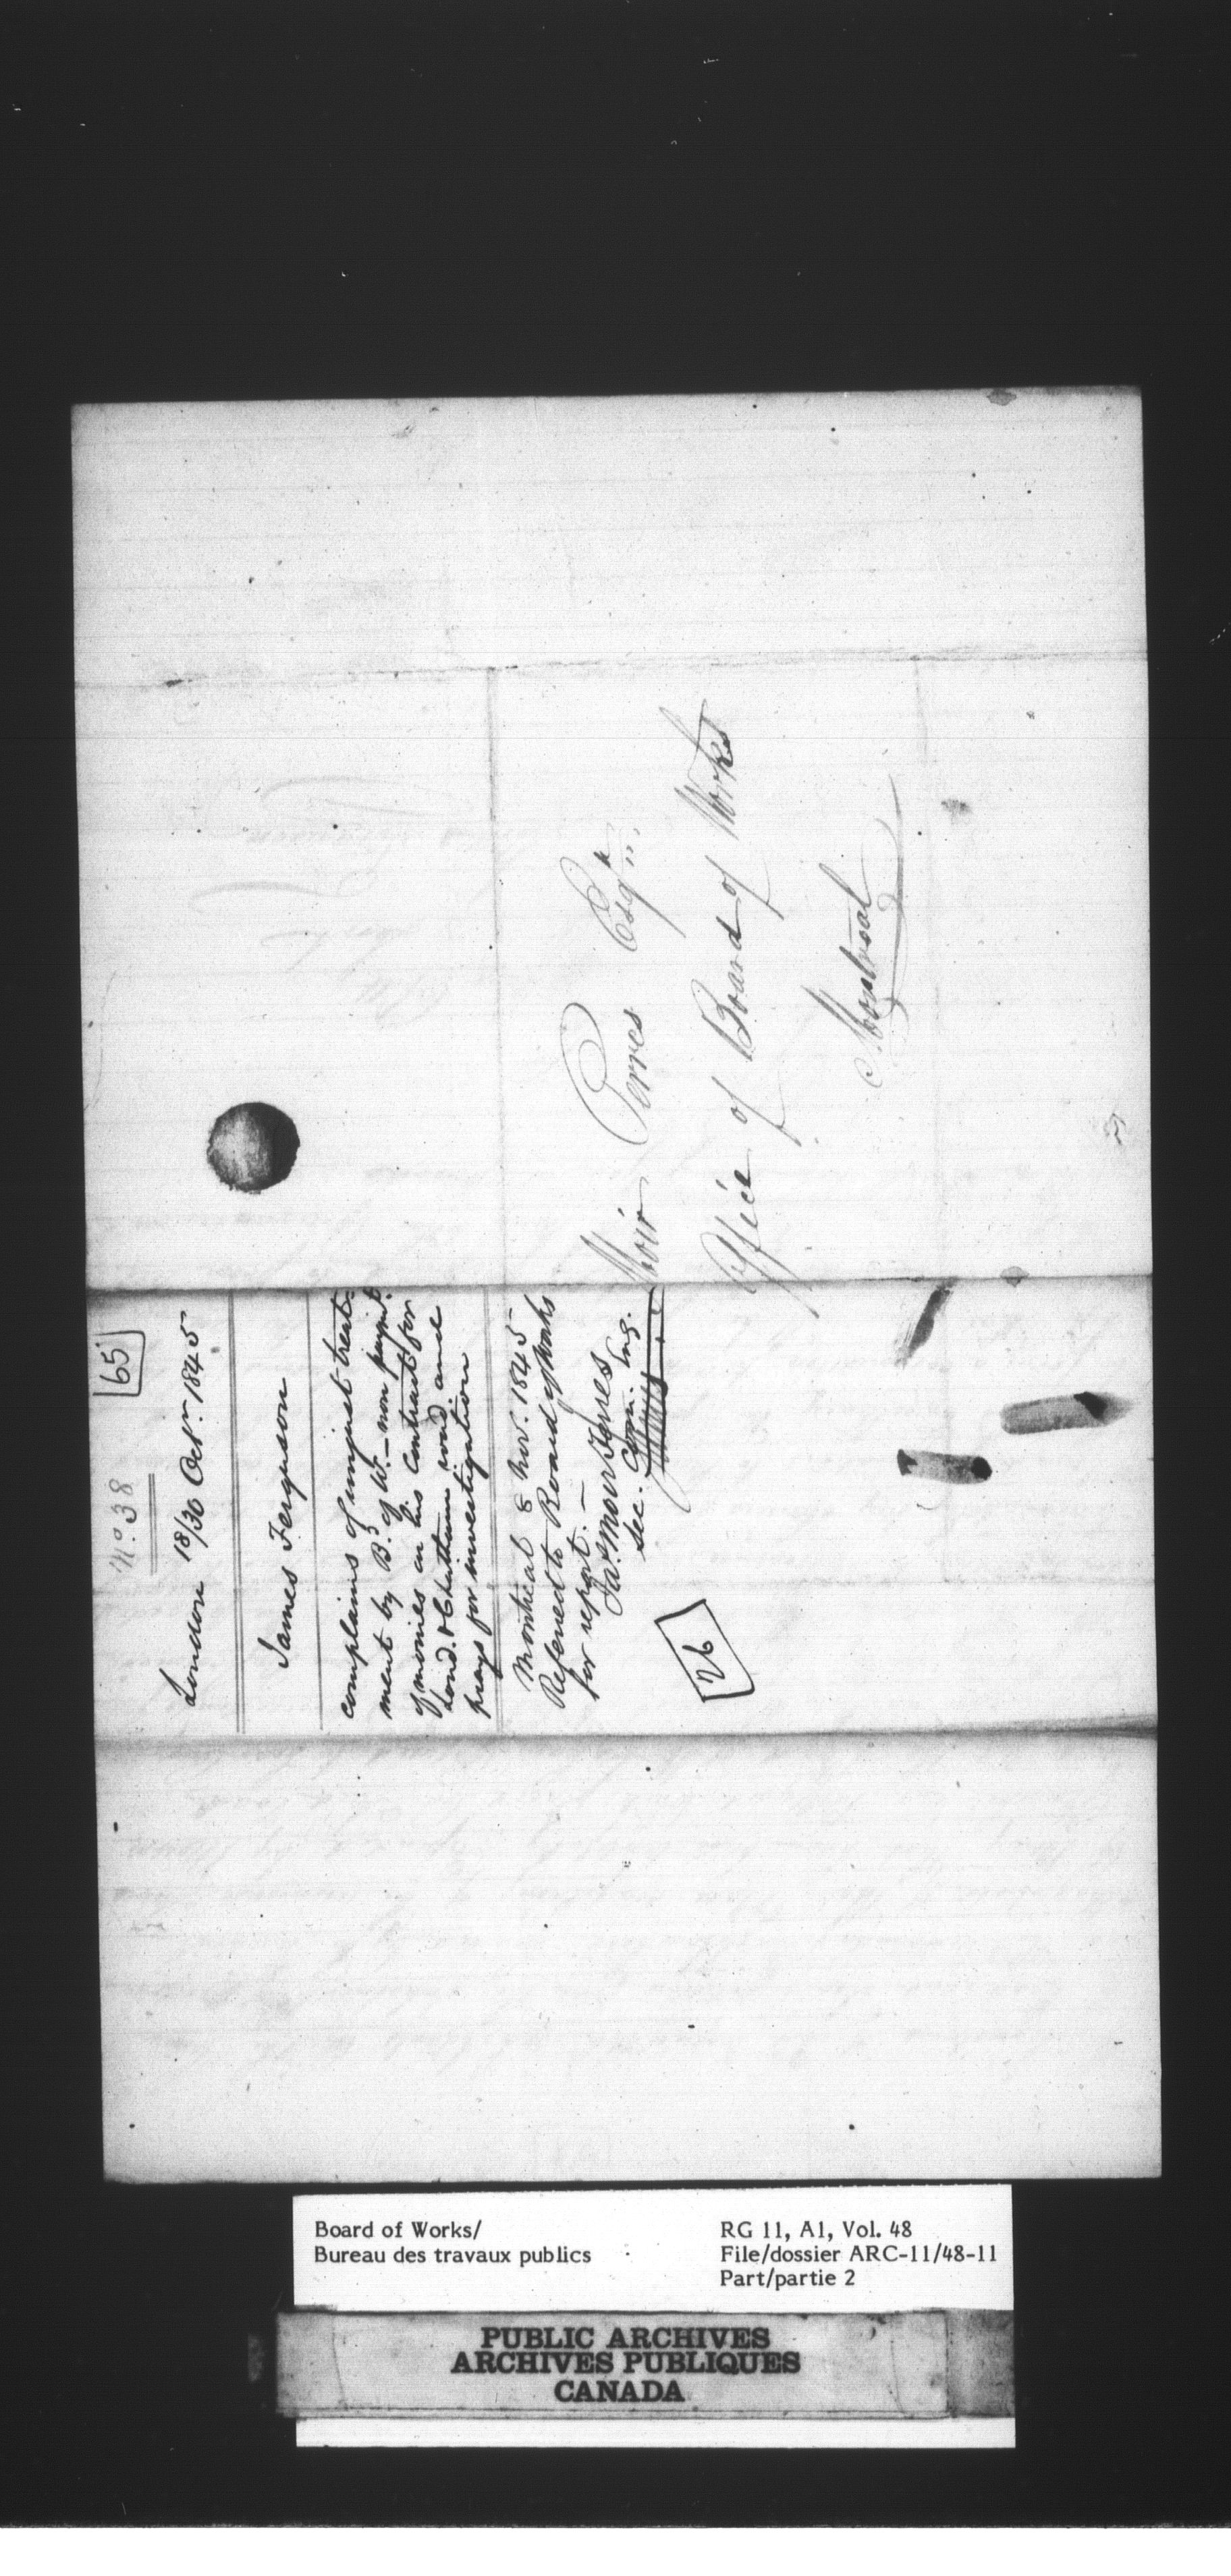 65
No. 38
London 18/30 Octr. 1845
James Ferguson
complains of unjust treat-
ment by B. of W. - non paymt.
of monies on his Contract for
Lond. & Chatham road and
prays for investigation
Montreal 8 Nov. 1845
Referred to Board of Works
for report. -
Sec. Com. Enq.
26
Moir Ferres Esqr.
Office of Board of Works
Montreal
Board of Works/
Bureau des travaux publics
RG 11, A1, Vol. 48
File/dossier ARC-11/48-11
Part/partie 2
PUBLIC ARCHIVES
ARCHIVES PUBLIQUES
CANADA